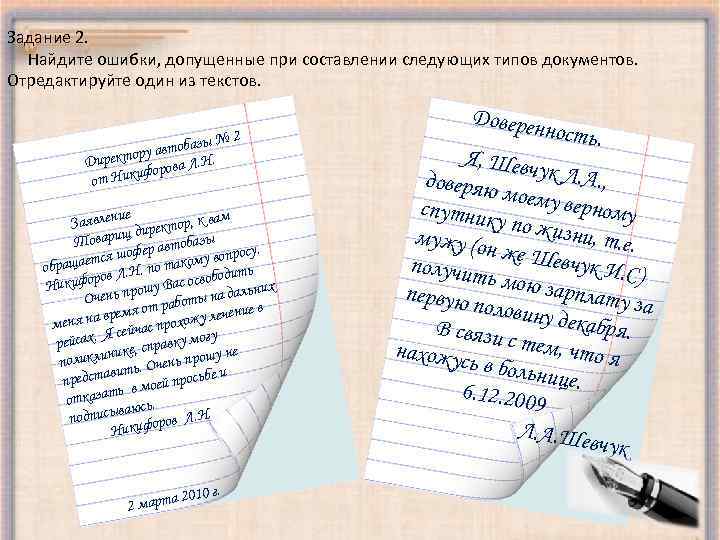 Задание 2.
Найдите ошибки, допущенные при составлении следующих типов документов.
Отредактируйте один из текстов.
Директору автобазы № 2
от Никифорова Л.Н.
Заявление
Товарищ директор, к вам
обращается шофер автобазы
Никифоров Л.Н. по такому вопросу.
Очень прошу Вас освободить
меня на время от работы на дальних
рейсах. Я сейчас прохожу лечение в
поликлинике, справку могу
представить. Очень прошу не
отказать в моей просьбе и
подписываюсь.
Никифоров Л.Н
2 марта 2010 г.
Доверенность.
Я, Шевчук Л.А.,
доверяю моему верному
спутнику по жизни, т.е.
мужу (он же Шевчук И.С)
получить мою зарплату за
первую половину декабря.
В связи с тем, что я
нахожусь в больнице.
6.12.2009
Л.А.Шевчук